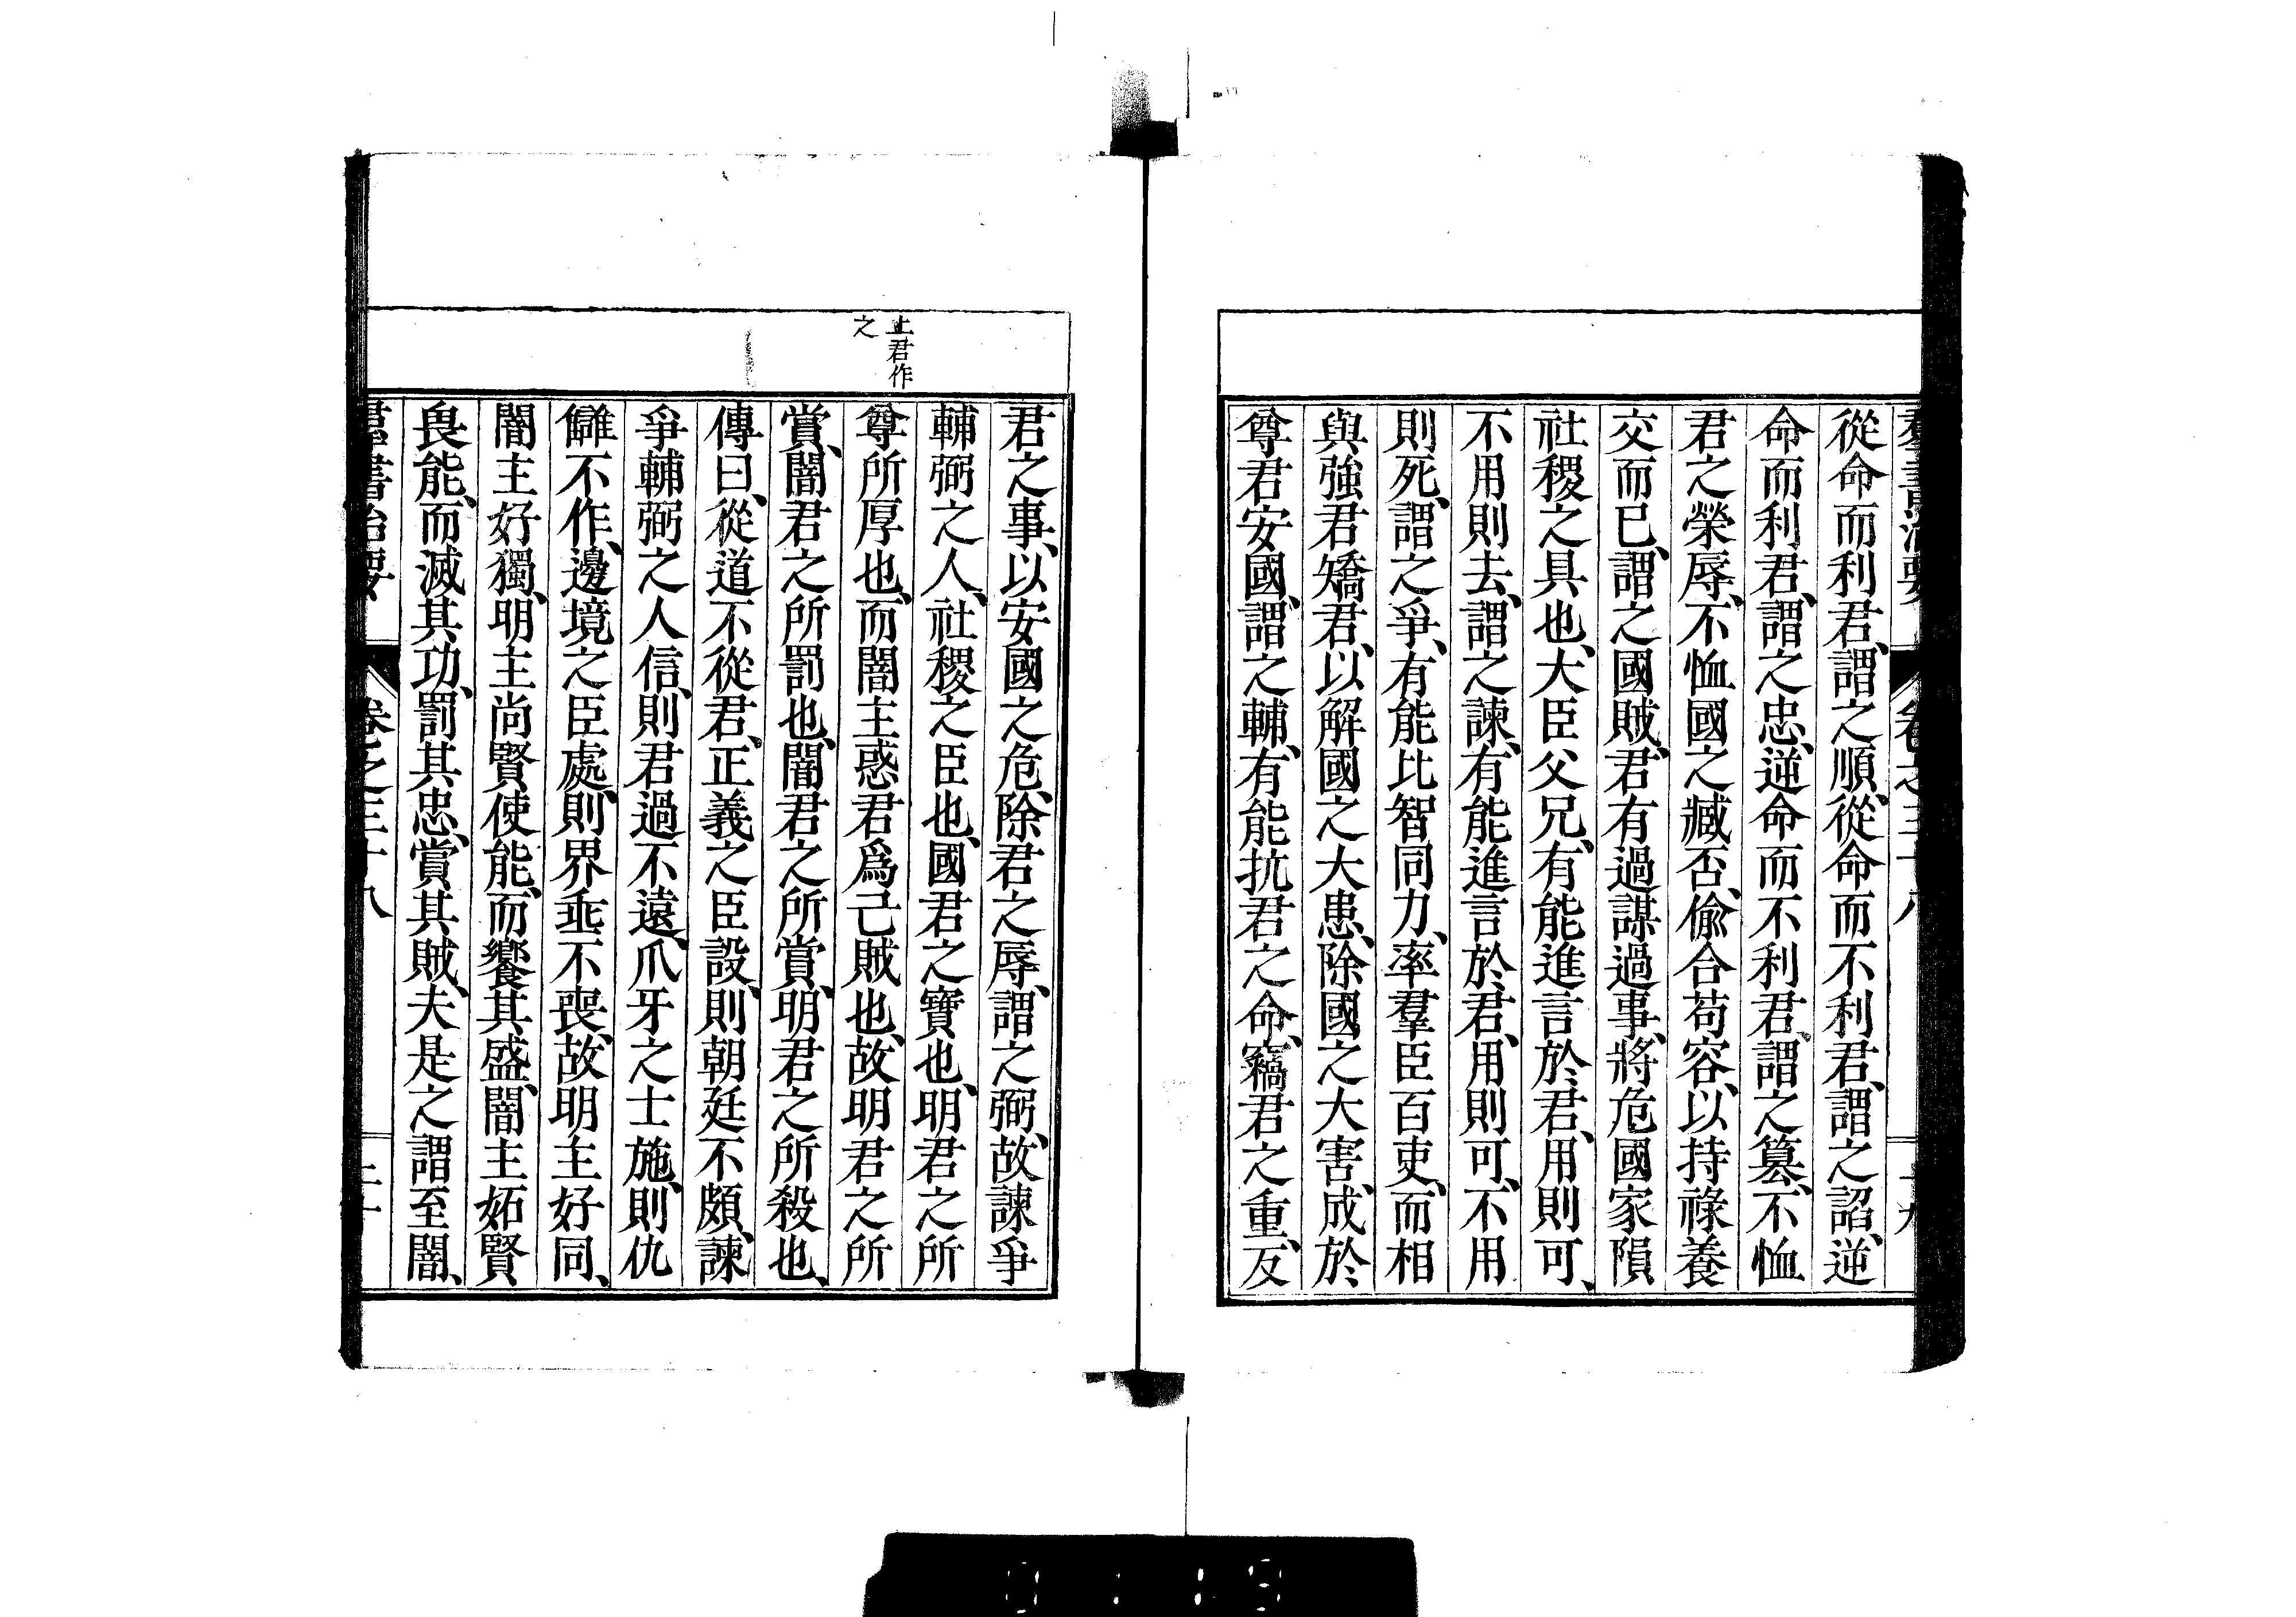 羣書治要 卷之三十八 十九
從命而利君、謂之順、從命而不利君、謂之諂、逆
命而利君、謂之忠、逆命而不利君、謂之篡、不恤
君之榮辱、不恤國之臧否、偸合苟容、以持祿養
交而已、謂之國賊、君有過謀過事、將危國家隕
社稷之具也、大臣父兄、有能進言於君、用則可、
不用則去、謂之諫、有能進言於君、用則可、不用
則死、謂之爭、有能比智同力、率羣臣百吏、而相
與強君矯君、以解國之大患、除國之大害、成於
尊君安國、謂之輔、有能抗君之命、竊君之重、反
君之事、以安國之危、除君之辱、謂之弼、故諫爭
輔弼之人、社稷之臣也、國君之寶也、明君之所
尊所厚也、而闇主惑君爲己賊也、故明君之所
賞、闇君之所罰也、闇君之所賞、明君之所殺也、
傳曰、從道不從君、正義之臣設、則朝廷不頗、諫
爭輔弼之人信、則君過不遠、爪牙之士施、則仇
讎不作、邊境之臣處、則界垂不喪、故明主好同、
闇主好獨、明主尚賢使能、而饗其盛、闇主妬賢
畏能、而滅其功、罰其忠、賞其賊、夫是之謂至闇、
上君作
之
羣書治要 卷之三十八 二十